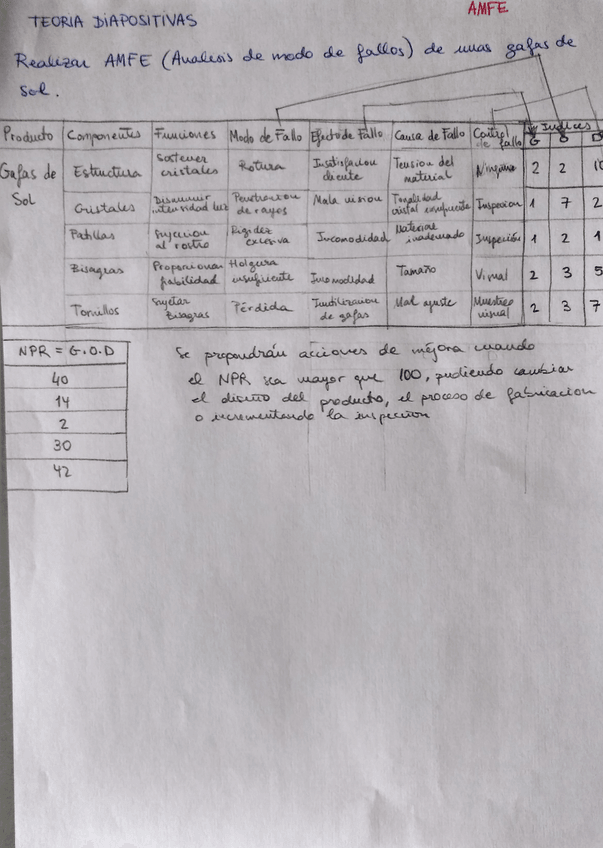 AMFE
TEORIA DIAPOSITIVAS
Realizar AMFE (Analisis de modo de fallos) de unas gafas de
Sol.
Producto Componentes Funciones Modo de Fallo Efecto de Fallo Causa de Fallo Control de fallo Indices G O D
Gafas de Sol Estructura Sostener cristales Rotura Insatisfaccion cliente Tension del material Ninguno 2 2 10
Cristales Disminuir intensidad luz Penetracion de rayos Mala vision Tonalidad cristal Inspecion 1 7 2
Patillas Sujecion al rostro Rigidez excesiva Incomodidad Material inadecuado Inspeción 1 2 1
Bisagras Proporcionar fiabilidad Holgura insuficiente Incomodidad Tamaño Visual 2 3 5
Tornillos Sujetar Bisagras Pérdida Inutilizacion de gafas Mal ajuste Muestreo visual 2 3 7
NPR = G.O.D
40
14
2
30
42
Se propondrán acciones de mejora cuando
el NPR sea mayor que 100, pudiendo cambiar
el diseño del producto, el proceso de fabricacion
o incrementando la inspección